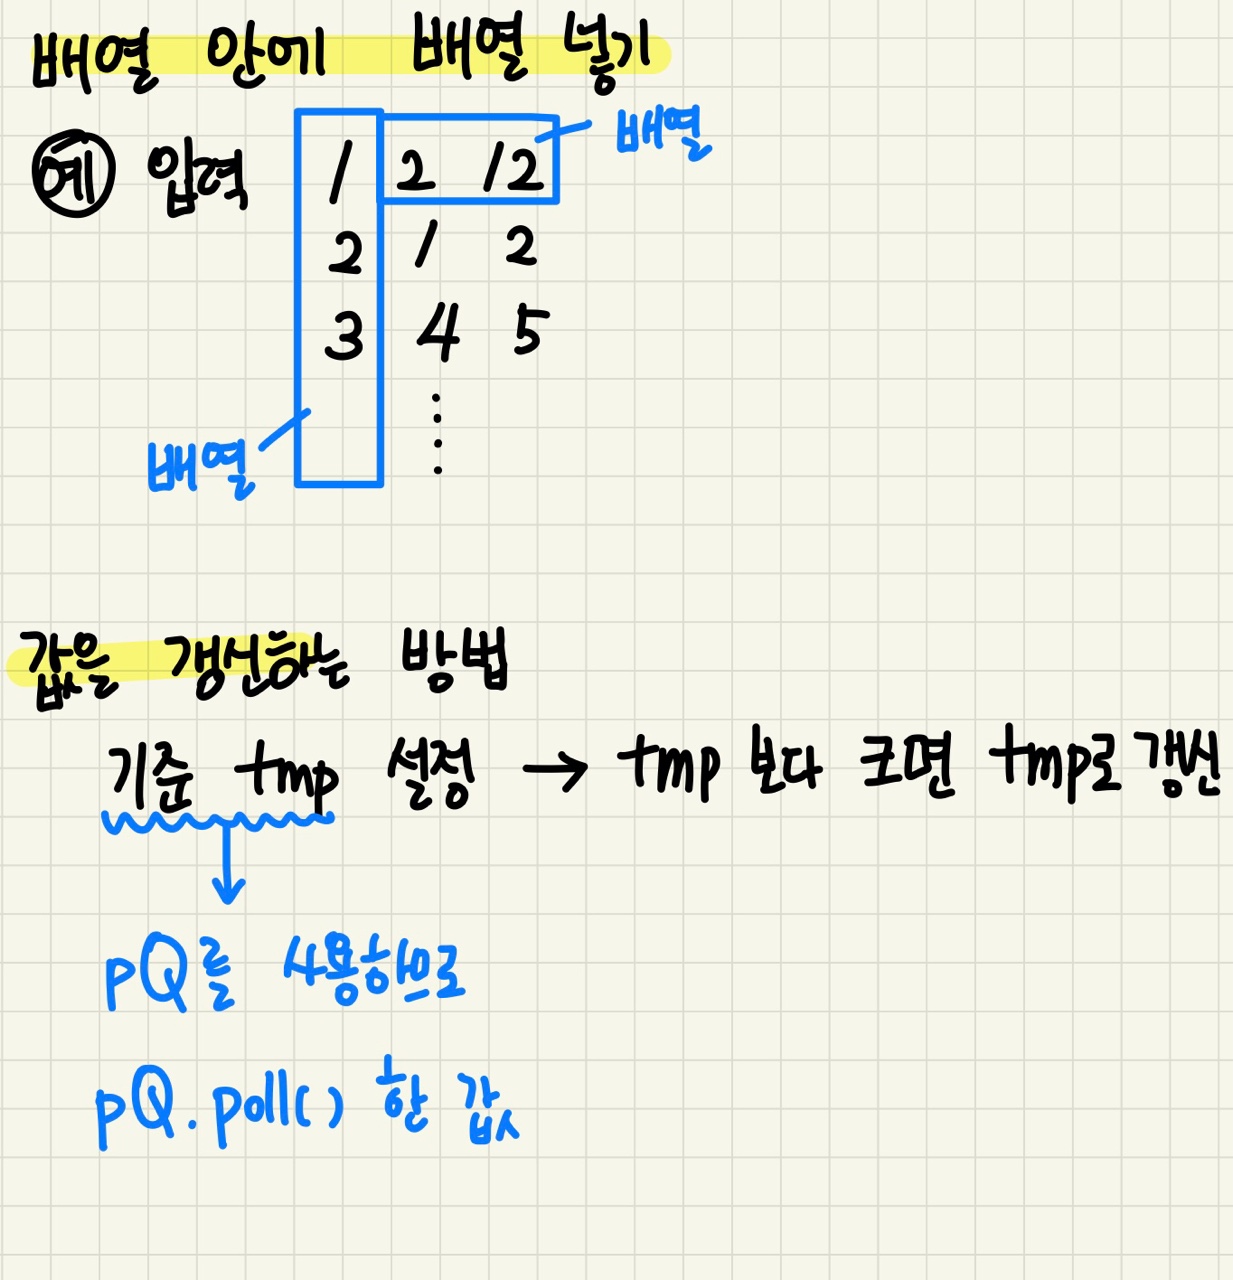 배열 안에 배열 넣기
배열
예 입력 1 2 12
2 1 2
3 4 5
배열
값을 갱신하는 방법
기준 tmp 설정 → tmp 보다 크면 tmp로 갱신
pQ를 사용하므로
pQ.poll() 한 값